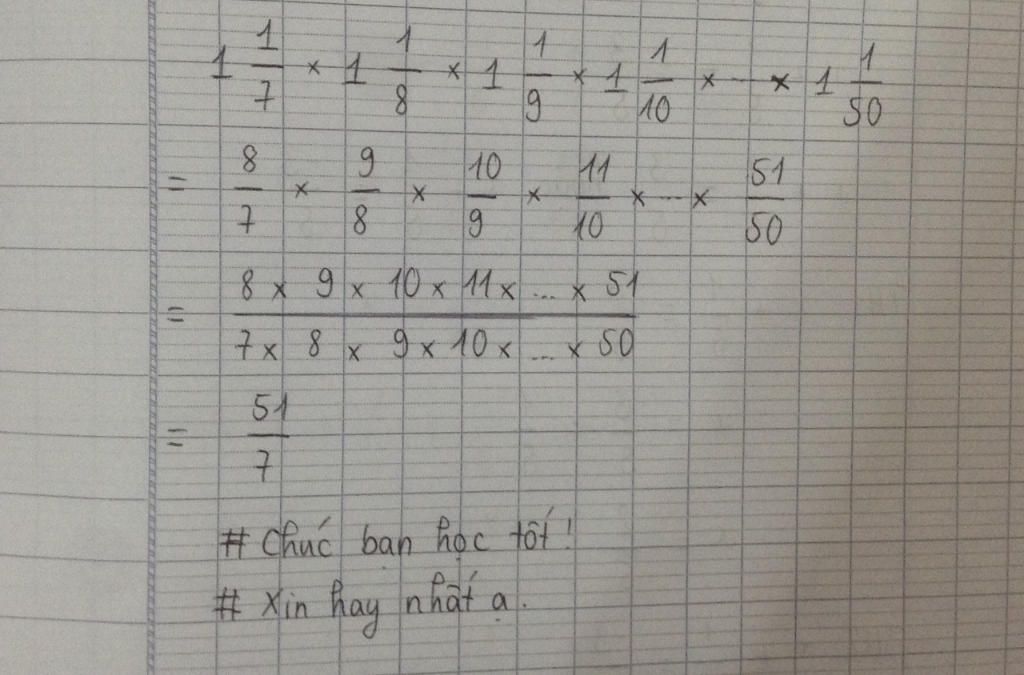 1 1/7 × 1 1/8 × 1 1/9 × 1 1/10 × ... × 1 1/50
= 8/7 × 9/8 × 10/9 × 11/10 × ... × 51/50
= (8 × 9 × 10 × 11 × ... × 51)/(7 × 8 × 9 × 10 × ... × 50)
= 51/7
# Chúc bạn học tốt!
# Xin hay nhất ạ.